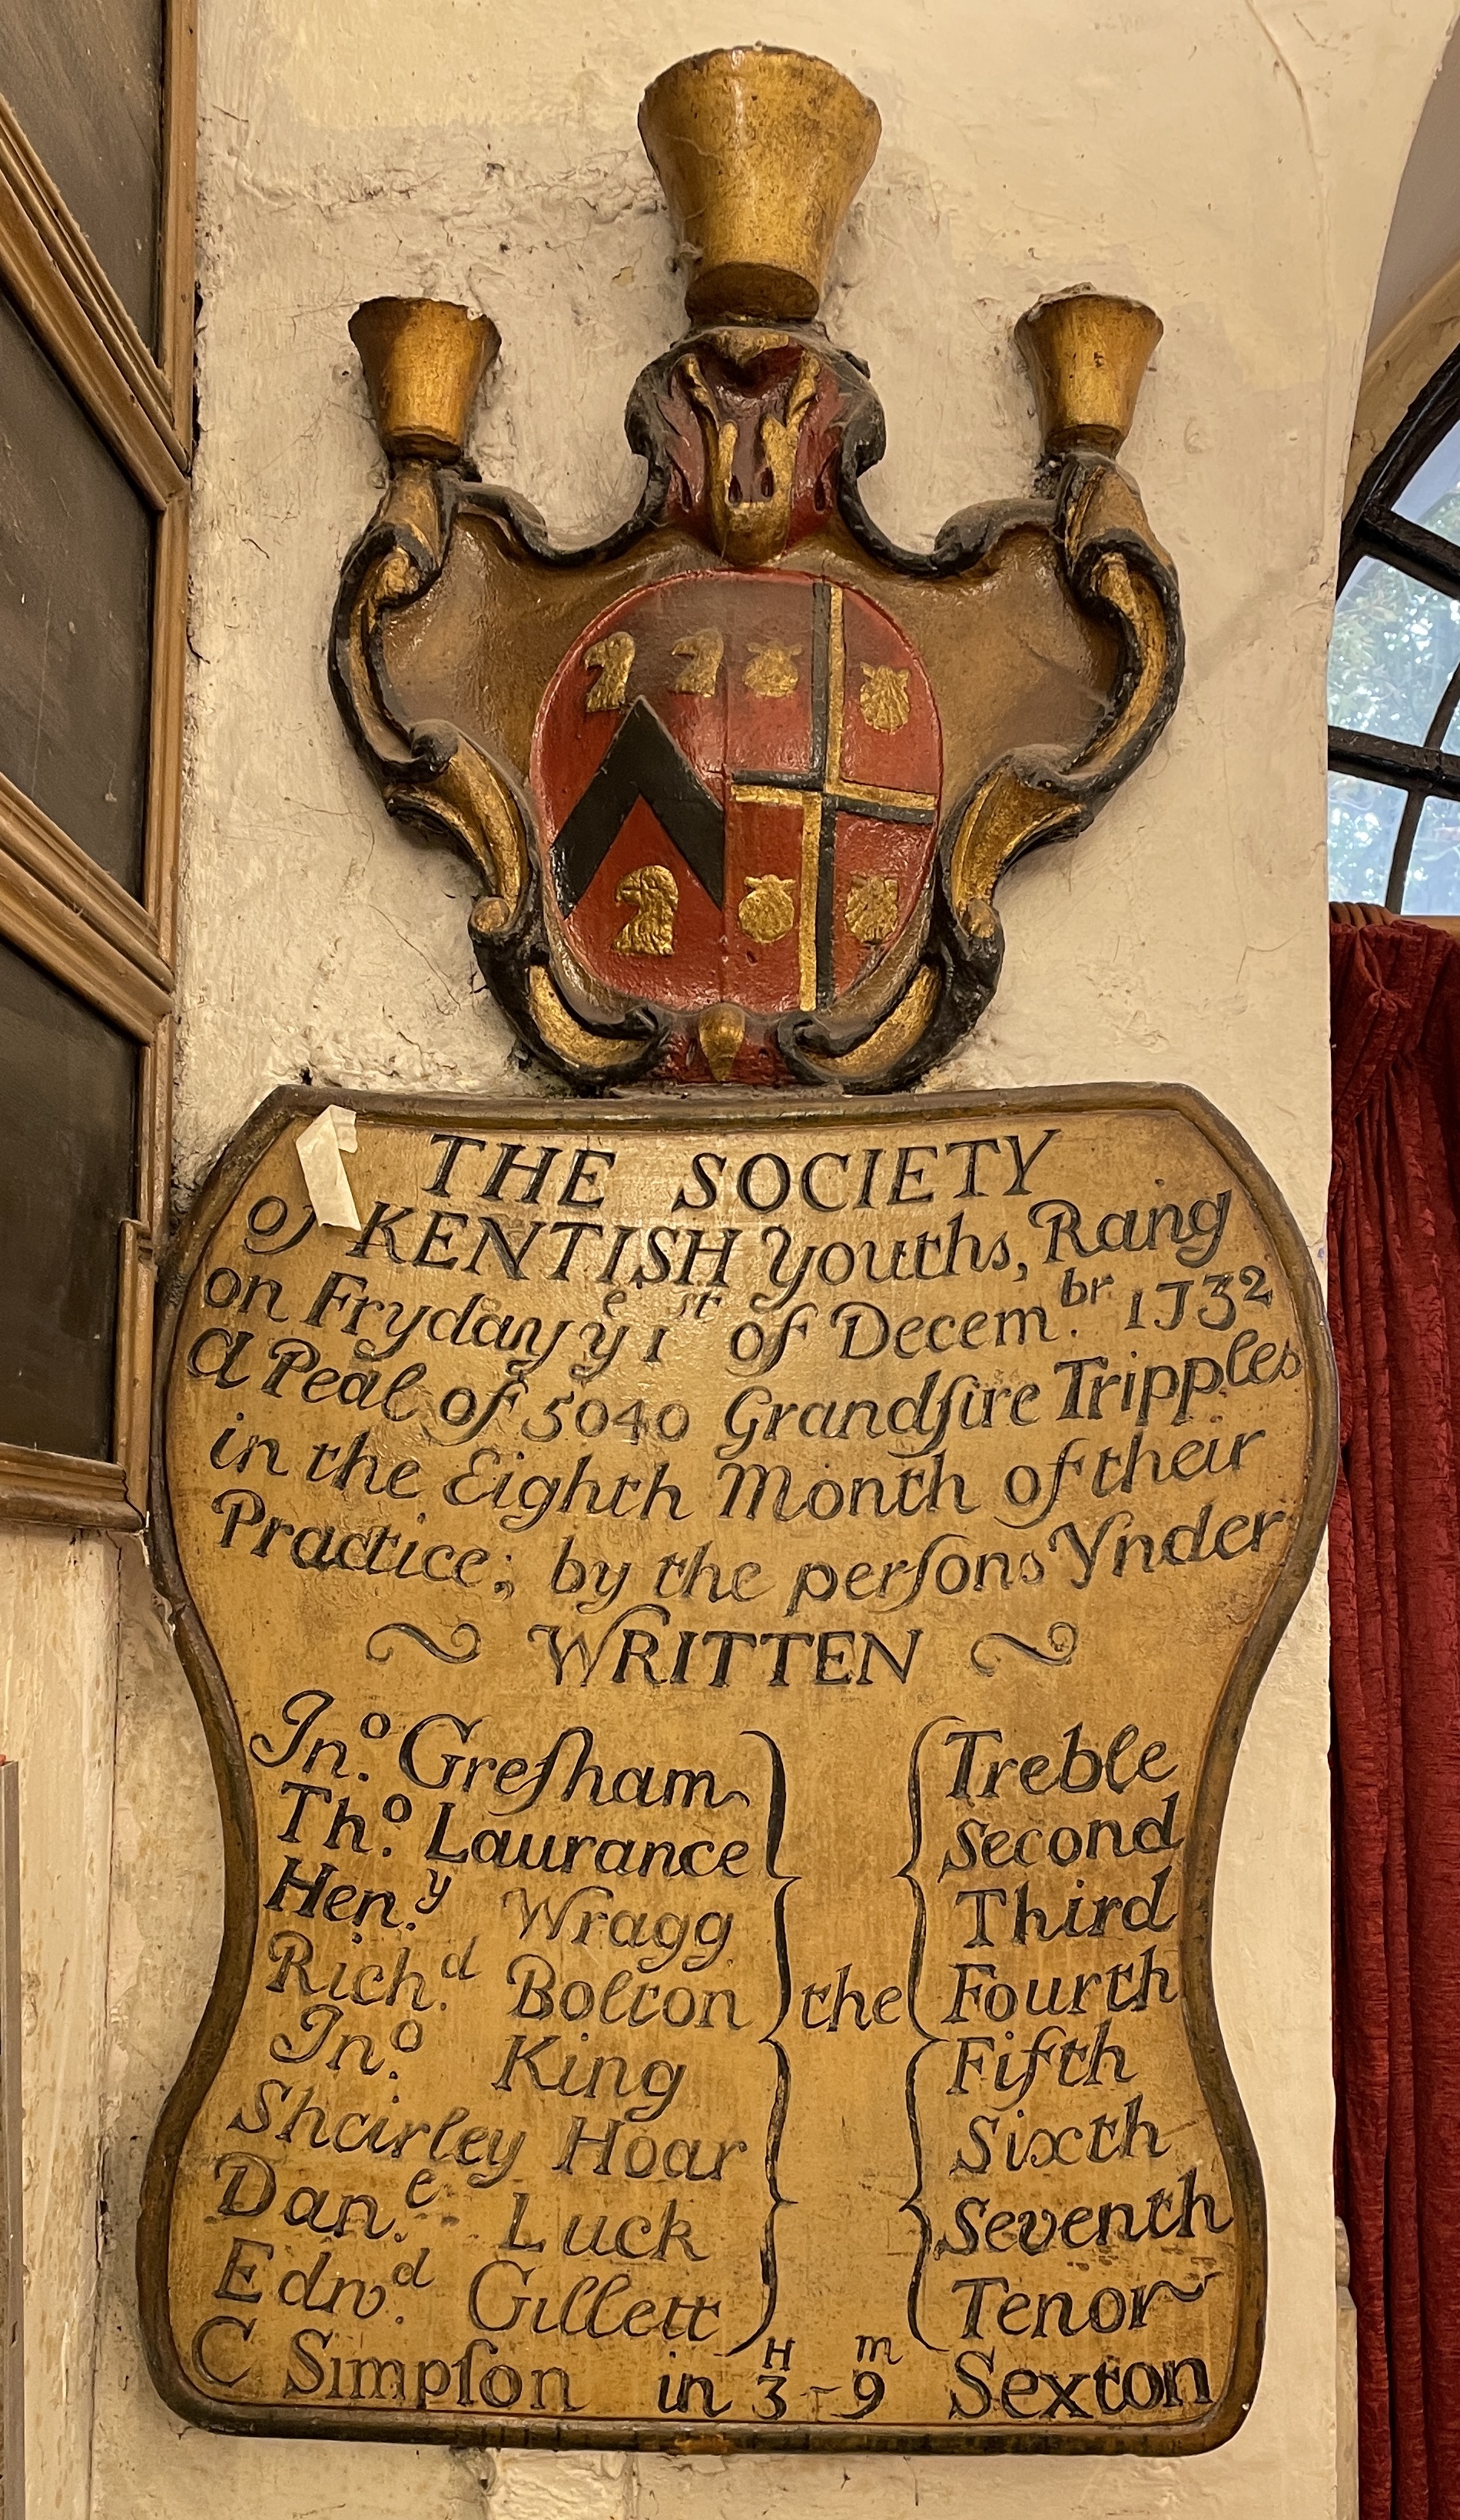 THE SOCIETY
of KENTISH Youths, Rang
on Fryday yͤ 1ˢᵗ of Decem.ᵇʳ 1732
A Peal of 5040 Grandſire Tripples
in the Eighth Month of their
Practice; by the perſons Vnder
WRITTEN
Jn.º Greſham Treble
Th.º Laurance Second
Hen.ʸ Wragg Third
Rich.ᵈ Bolton the Fourth
Jn.º King Fifth
Shairley Hoar Sixth
Dan.ᵉ Luck Seventh
Edw.ᵈ Gillett Tenor
C Simpſon in 3ᴴ - 9ᵐ Sexton